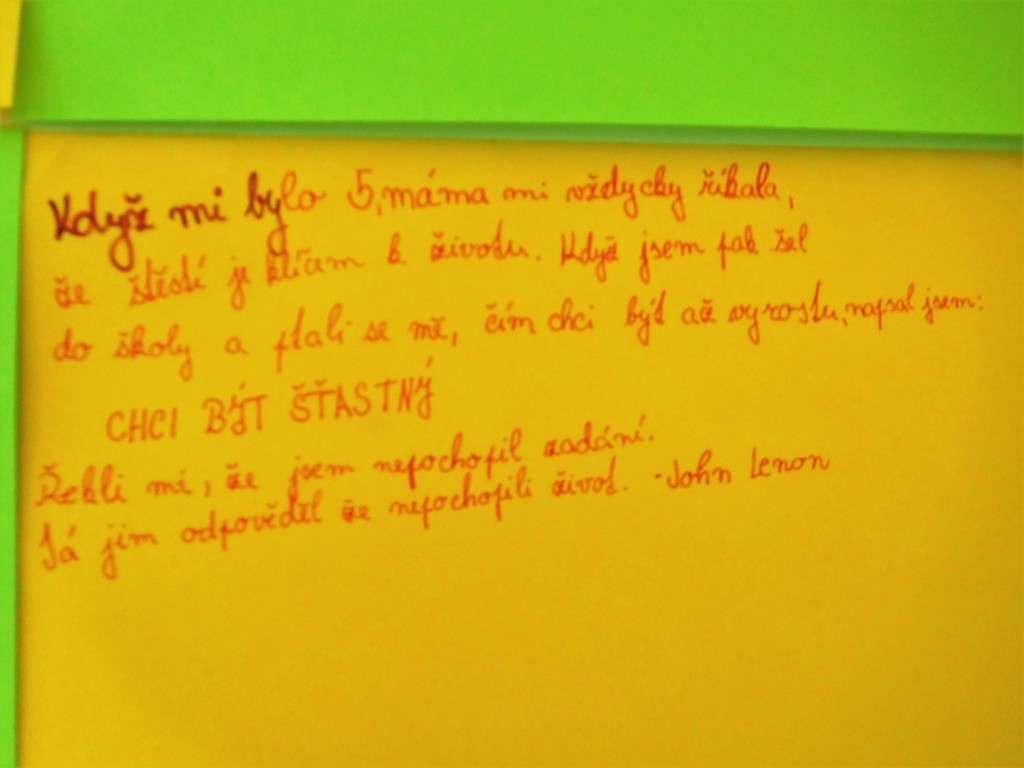 Když mi bylo 5, máma mi vždycky říkala,
že štěstí je klíčem k životu. Když jsem pak šel
do školy a ptali se mě, čím chci být až vyrostu, napsal jsem:
CHCI BÝT ŠŤASTNÝ
Řekli mi, že jsem nepochopil zadání.
Já jim odpověděl že nepochopili život. -John Lenon